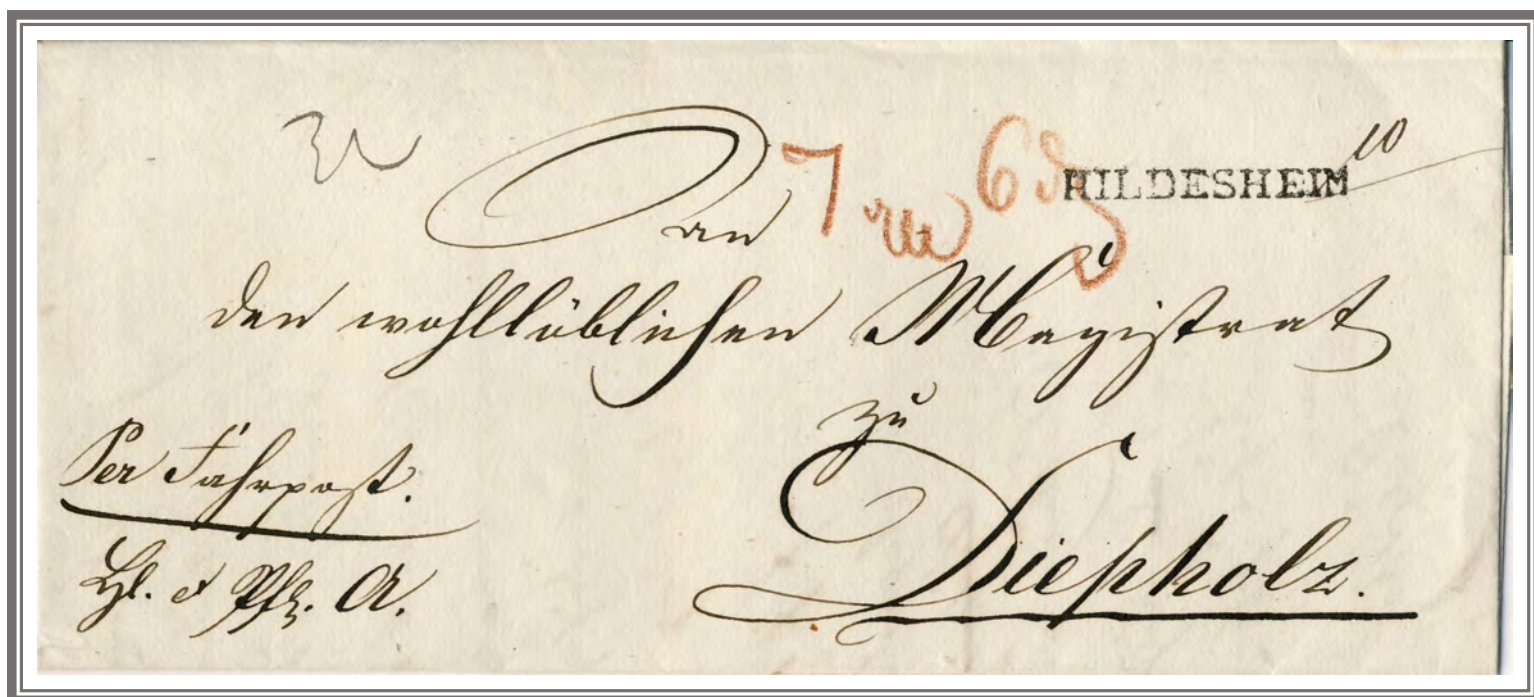 10
HILDESHEIM
7 6
An
den wohllöblichen Magistrat
zu
Diepholz.
Per Fahrpost.